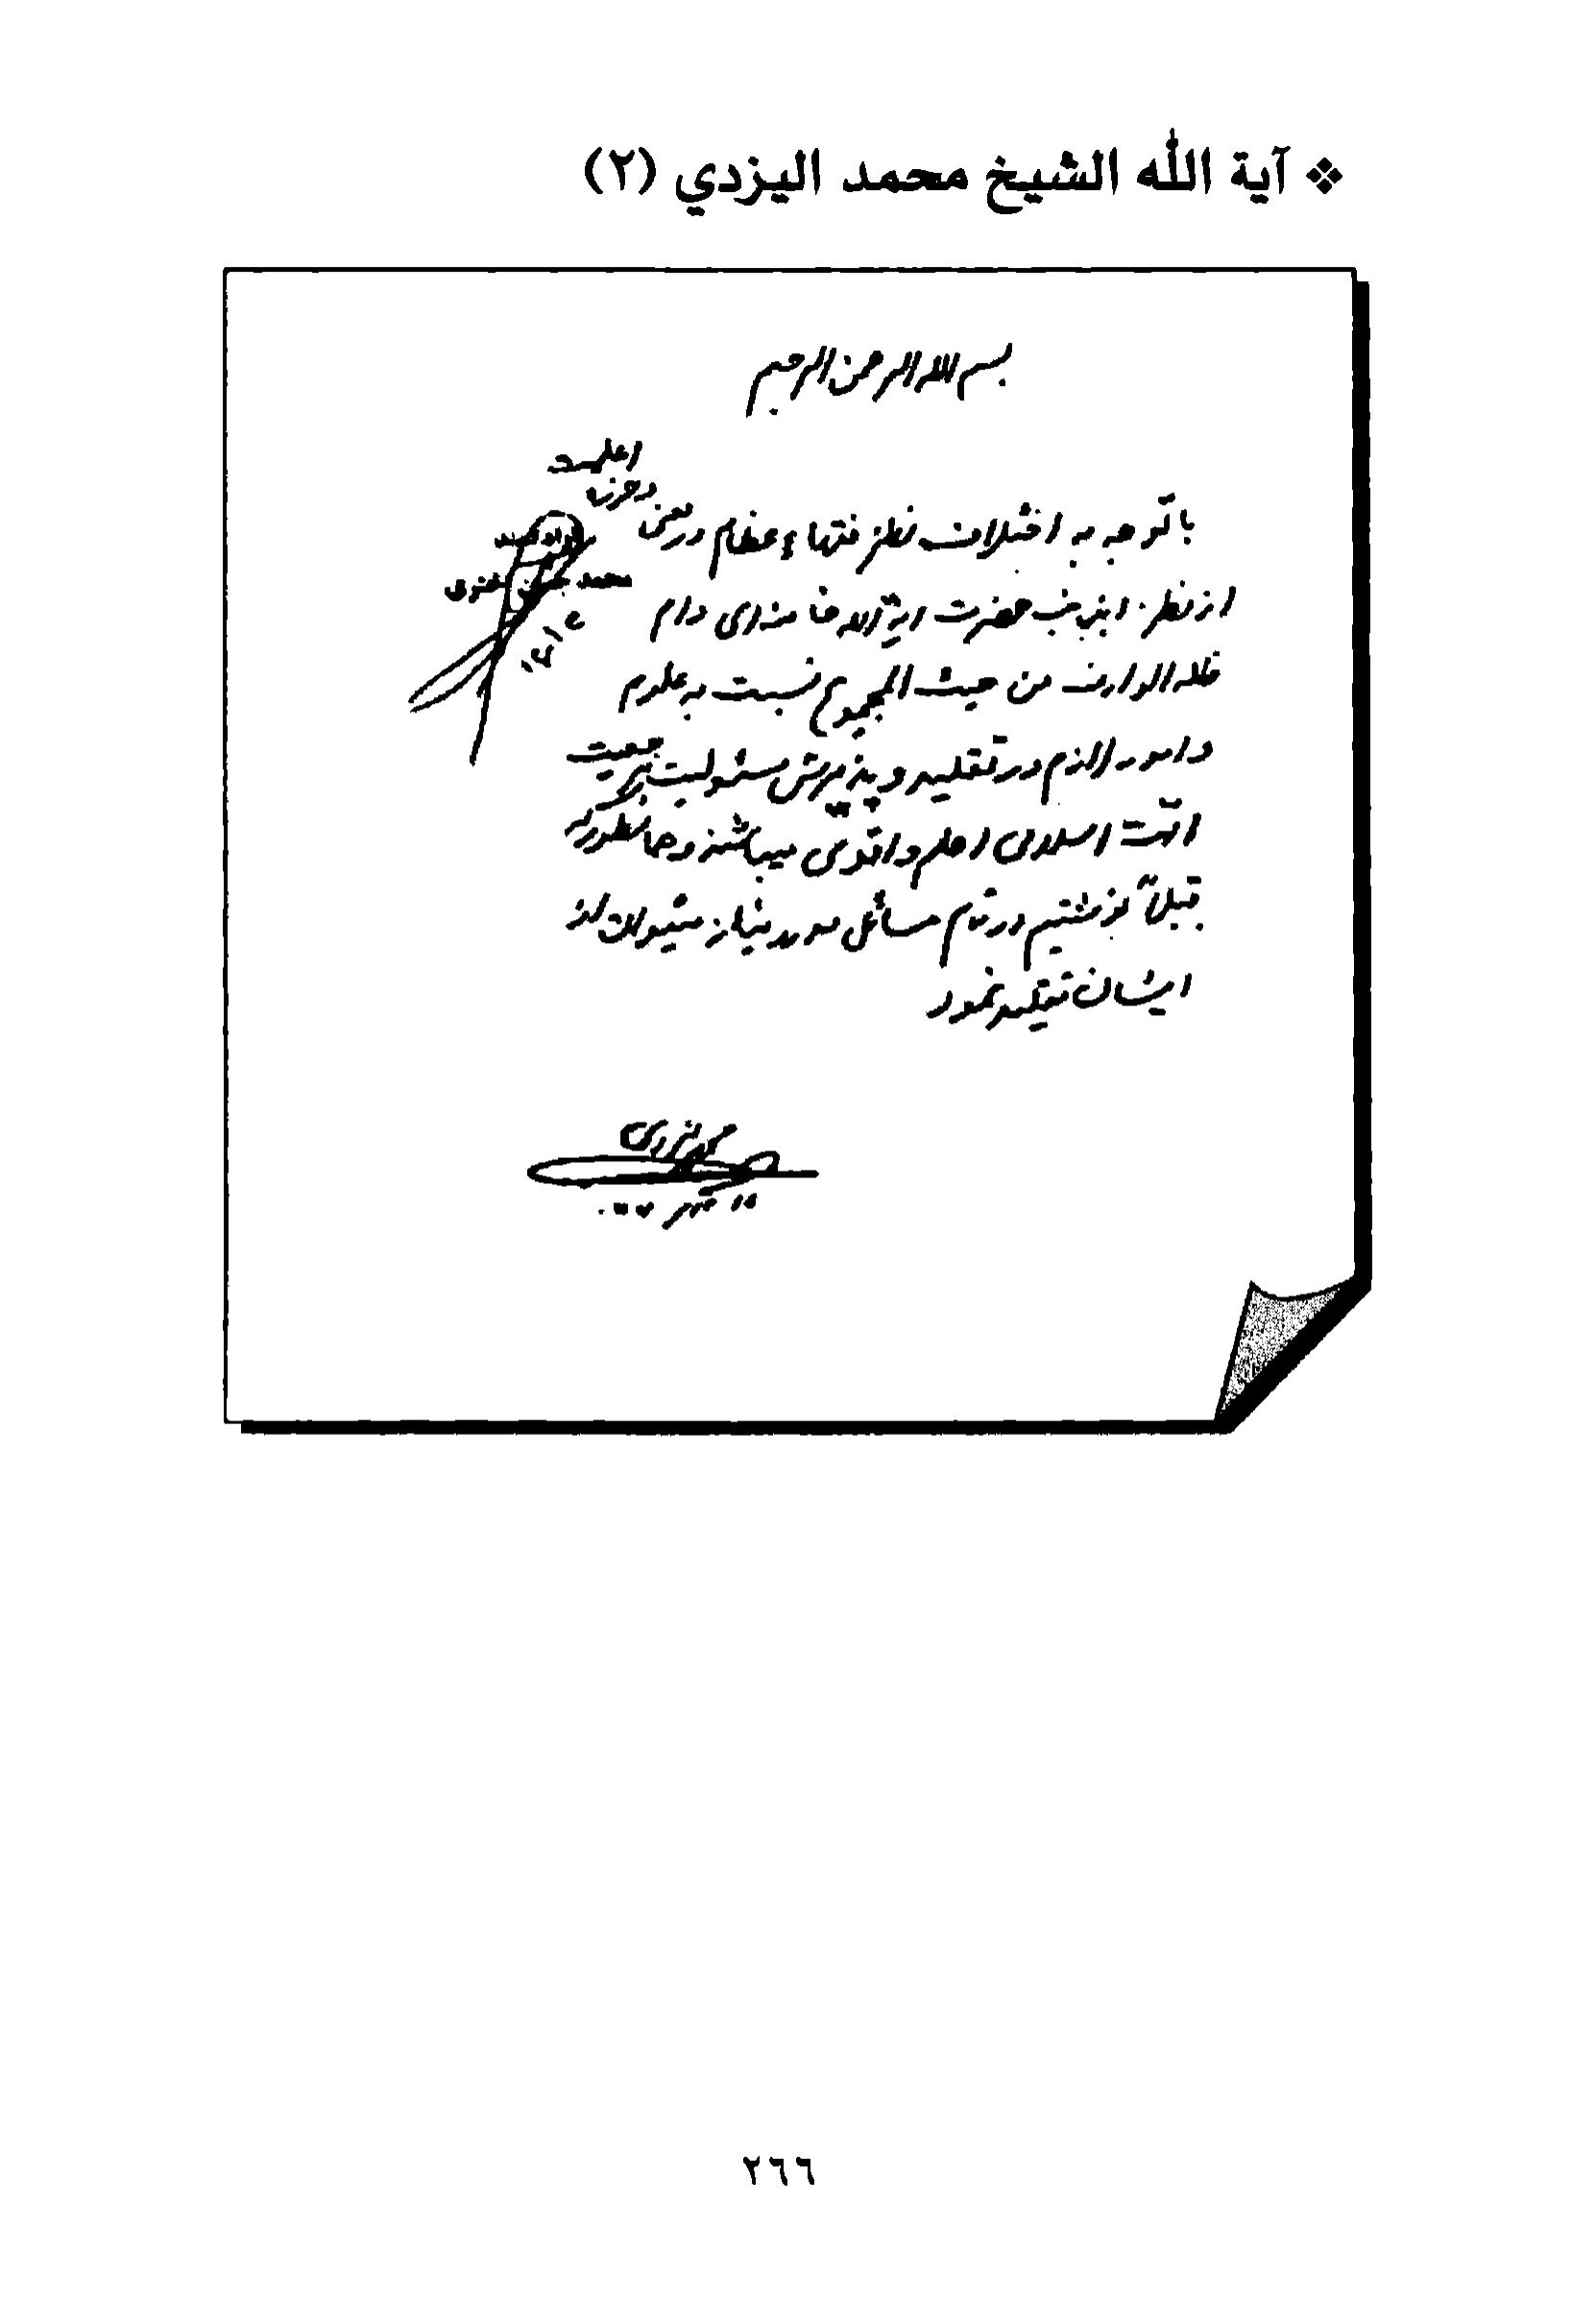 ❖ آية الله الشيخ محمد اليزدي (٢)
بسم الله الرحمن الرحيم
با توجه به اختلاف نظر فقهاء عظام در معنی
اعلمیت
از نظر اینجانب حضرت آیة الله خامنه‌ای دام
ظله الوارف من حیث المجموع نسبت به علوم
و امور لازم در تقلید و پذیرش مسئولیت مرجعیت
امت اسلامی اعلم و اقوی میباشند و همانطور که
قبلاً نوشتیم در تمام مسائل مورد نیاز میتوان از
ایشان تقلید نمود
محمد یزدی
٢٦٦